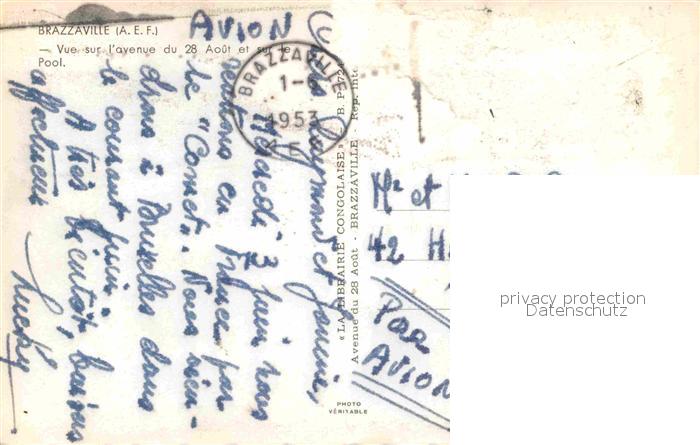 BRAZZAVILLE (A. E. F.)
— Vue sur l'avenue du 28 Août et sur le
Pool.
AVION
BRAZZAVILLE
1-6
1953
A.E.F.
Chers Raymond et Jeannine,
Mercredi 3 juin nous
rentrons en France par
le "Comet". Nous
à Bruxelles dans
le courant juin.
A très bientôt, baisers
affectueux
Lucky
«LA LIBRAIRIE CONGOLAISE» - B. P.
Avenue du 28 Août - BRAZZAVILLE - Rep. inte
PHOTO
VÉRITABLE
Mr et
42
Par
AVION
privacy protection
Datenschutz